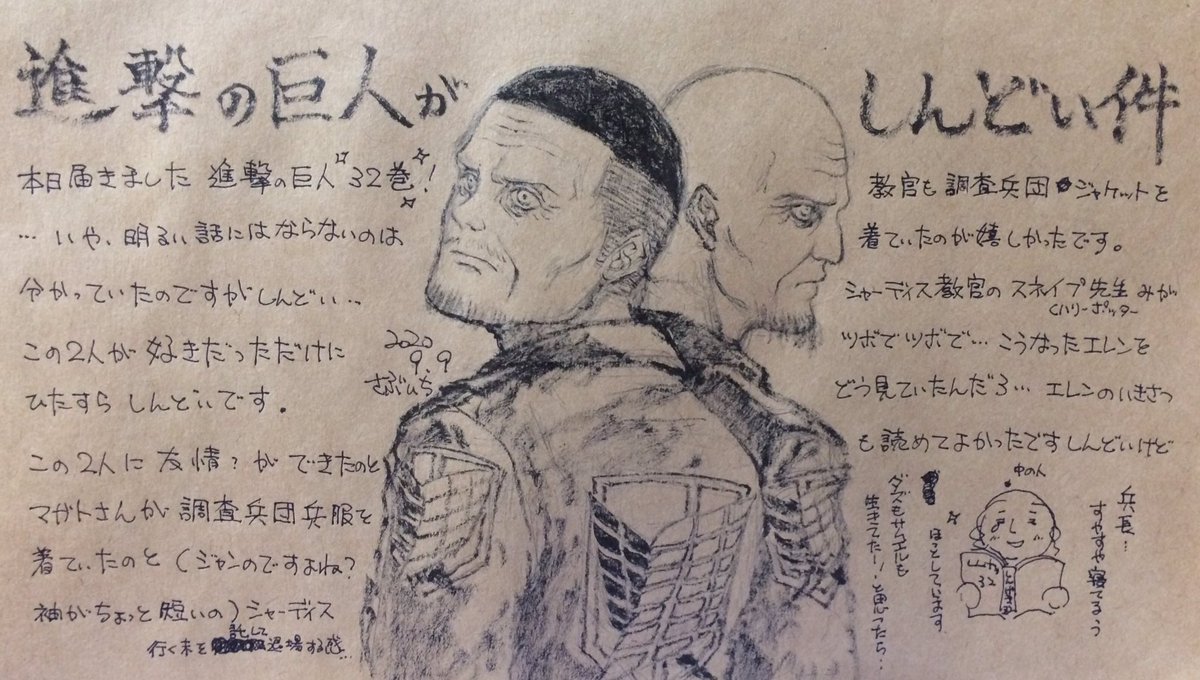 進撃の巨人が しんどい件
本日届きました 進撃の巨人 32巻!
… いや、明るい話にはならないのは
分かっていたのですがしんどい…
この2人が好きだっただけに
ひたすら しんどいです.
この2人に 友情?が できたのと
マガトさんが 調査兵団兵服を
着ていたのと (ジャンのですよね?
袖がちょっと短いの) シャーディス
行く末を 託して 退場する感…
2020
9.9
さぶいち
教官も 調査兵団 ジャケットを
着ていたのが嬉しかったです。
シャーディス教官の スネイプ先生 みが
<ハリーポッター
ツボでツボで… こうなったエレンを
どう見ていたんだろ… エレンのいきさつ
も読めてよかったですしんどいけど
中の人
兵長…
すやすや寝てるぅ
ほっこりしてしまいます
ダズもサムエルも
生きてたー!と思ったら…